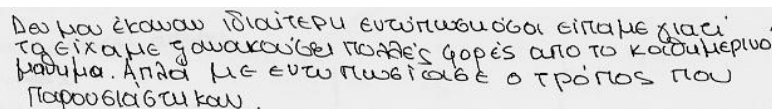 Δεν μου έκαναν ιδιαίτερη εντύπωση όσα είπαμε γιατί
τα είχαμε ξανακούσει πολλές φορές από το καθημερινό
μάθημα. Απλά με εντυπωσίασε ο τρόπος που
παρουσιάστηκαν.